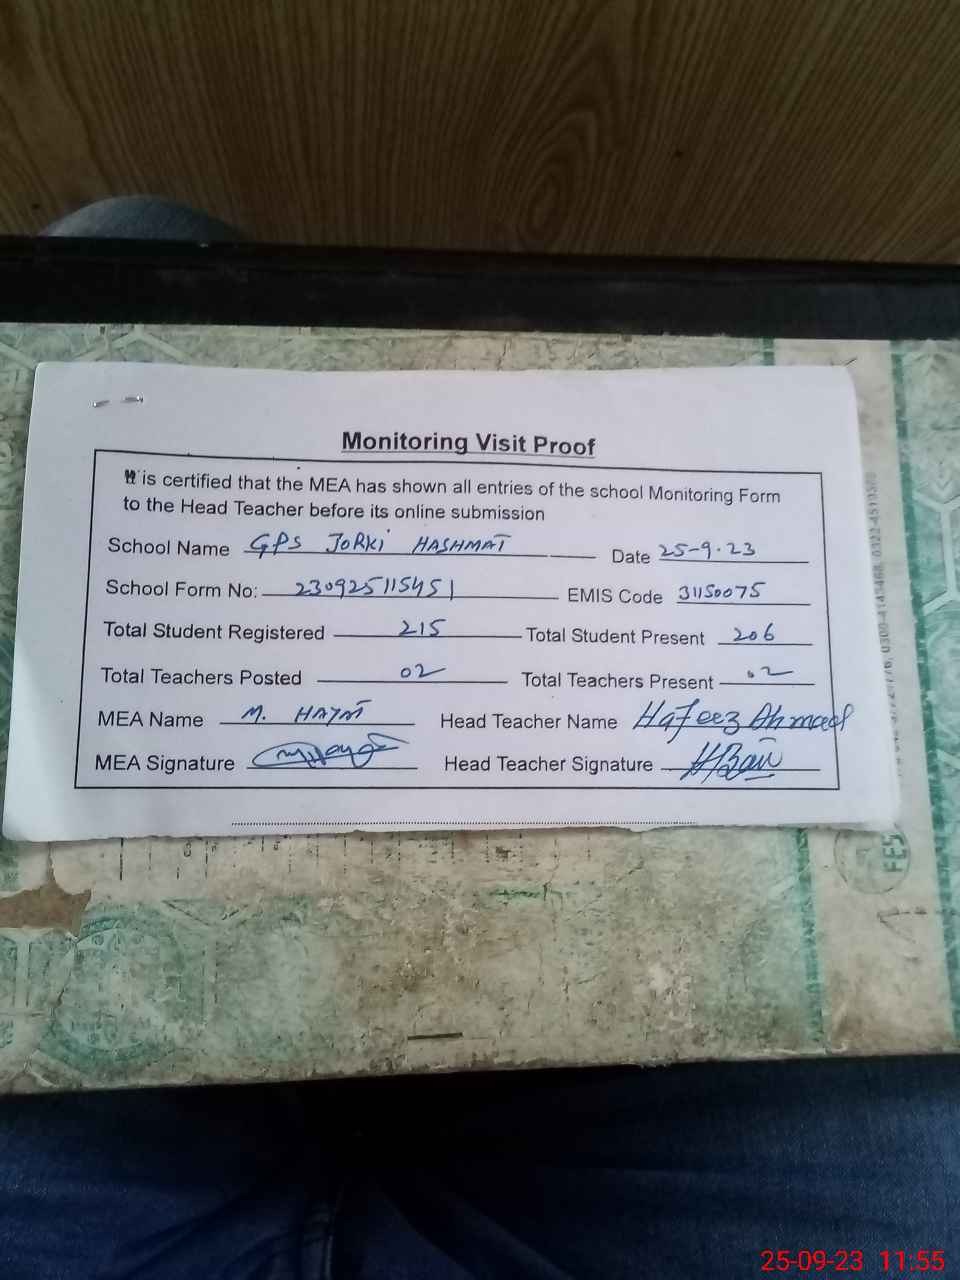 Monitoring Visit Proof
It is certified that the MEA has shown all entries of the school Monitoring Form
to the Head Teacher before its online submission
School Name GPS JORKI HASHMAT Date 25-9-23
School Form No: 230925115451 EMIS Code 31150075
Total Student Registered 215 Total Student Present 206
Total Teachers Posted 02 Total Teachers Present 02
MEA Name M. HAYAT Head Teacher Name Hafeez Ahmad
MEA Signature Head Teacher Signature
25-09-23 11:55